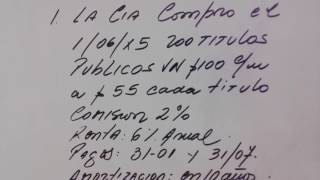 1. LA CIA COMPRO EL
1/06/X5 200 TITULOS
PUBLICOS VN $100 C/U
a $ 55 cada titulo
COMISION 2%
RENTA: 6% Anual.
Pagos: 31-01 y 31/07.
AMORTIZACION: en 10 años.